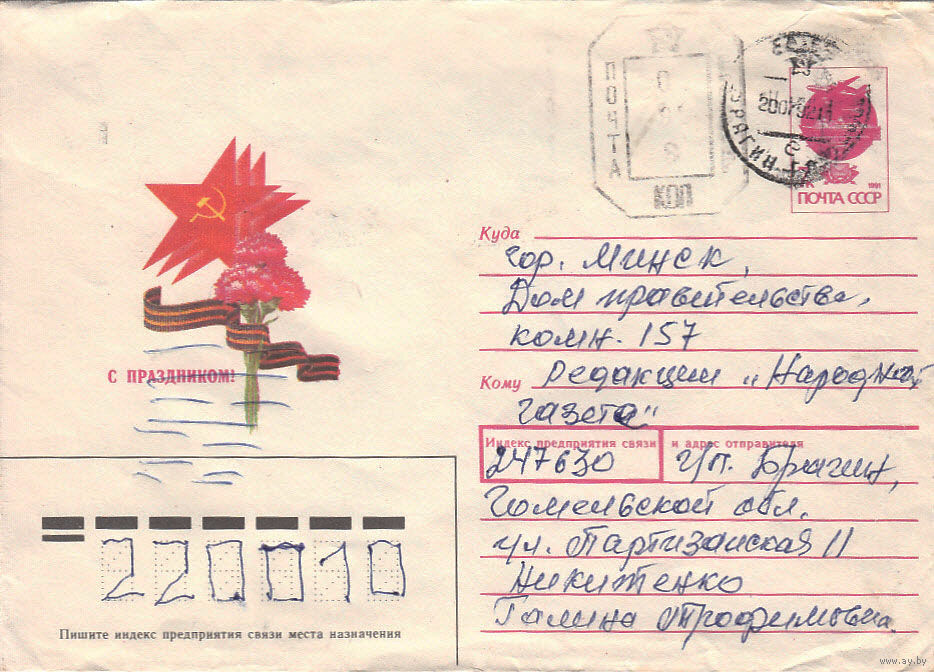 ПОЧТА
КОП
1991
ПОЧТА СССР
С ПРАЗДНИКОМ!
Куда
гор. Минск,
Дом правительства,
комн. 157
Кому Редакции „Народная
газета"
Индекс предприятия связи и адрес отправителя
247630 г/п. Брагин,
Гомельской обл.
ул. Партизанская 11
Никитенко
Галина Трофимовна.
220010
Пишите индекс предприятия связи места назначения
www.ay.by